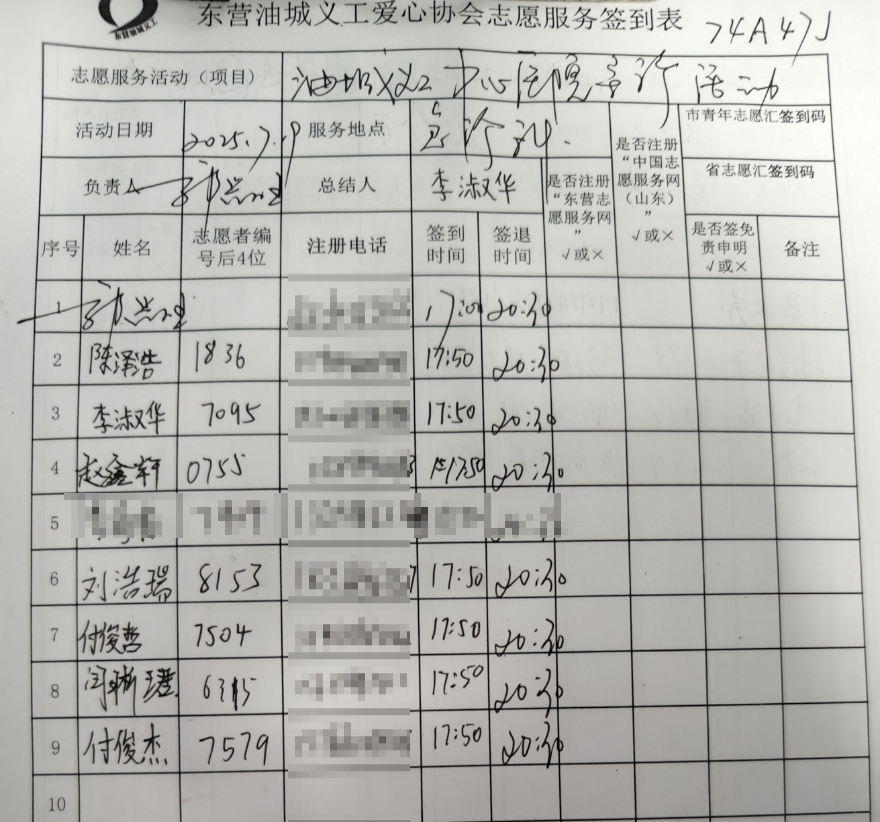 东营油城义工
东营油城义工爱心协会志愿服务签到表 74A47J
志愿服务活动（项目） 油城义工中心医院宣诊活动
活动日期 2025.7.19 服务地点 宣诊 是否注册“东营志愿服务网” √或× 是否注册“中国志愿服务网（山东）” √或× 市青年志愿汇签到码
负责人 总结人 李淑华 省志愿汇签到码
序号 姓名 志愿者编号后4位 注册电话 签到时间 签退时间 是否签免责申明 √或× 备注
1 17:00 20:30
2 陈泽浩 1836 17:50 20:30
3 李淑华 7095 17:50 20:30
4 赵鑫轩 0755 17:50 20:30
5
6 刘浩瑞 8153 17:50 20:30
7 付俊哲 7504 17:50 20:30
8 17:50 20:30
9 付俊杰 7579 17:50 20:30
10